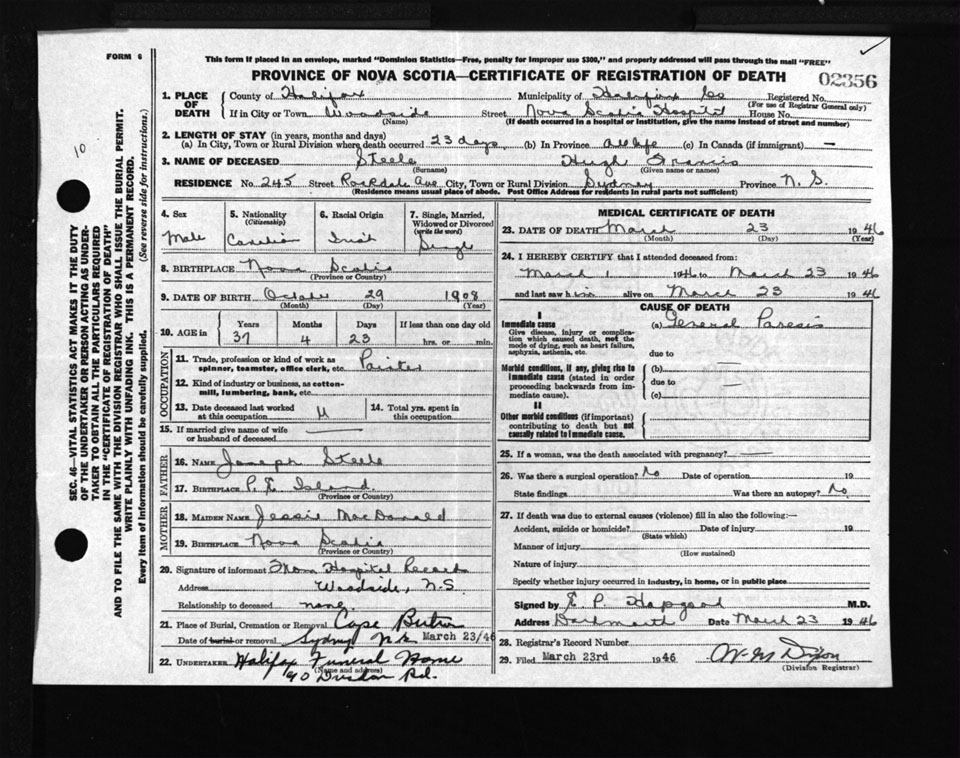 FORM 6
This form if placed in an envelope, marked "Dominion Statistics—Free, penalty for improper use $300," and properly addressed will pass through the mail "FREE"
PROVINCE OF NOVA SCOTIA—CERTIFICATE OF REGISTRATION OF DEATH
02356
1. PLACE OF DEATH
County of Halifax Municipality of Halifax Co Registered No.
(For use of Registrar General only)
If in City or Town Woodside Street Nova Scotia Hospital House No.
(Name) (If death occurred in a hospital or institution, give the name instead of street and number)
2. LENGTH OF STAY (in years, months and days)
(a) In City, Town or Rural Division where death occurred 23 days, (b) In Province All life (c) In Canada (if immigrant) —
3. NAME OF DECEASED Steele Hugh Francis
(Surname) (Given name or names)
RESIDENCE No. 245 Street Rockdale Ave City, Town or Rural Division Sydney Province N. S.
(Residence means usual place of abode. Post Office Address for residents in rural parts not sufficient)
4. Sex Male
5. Nationality (Citizenship) Canadian
6. Racial Origin Irish
7. Single, Married, Widowed or Divorced (write the word) Single
8. BIRTHPLACE Nova Scotia
(Province or Country)
9. DATE OF BIRTH October 29 1908
(Month) (Day) (Year)
10. AGE in Years 37 Months 4 Days 23 If less than one day old hrs. or min.
OCCUPATION
11. Trade, profession or kind of work as spinner, teamster, office clerk, etc. Painter
12. Kind of industry or business, as cotton-mill, lumbering, bank, etc.
13. Date deceased last worked at this occupation U
14. Total yrs. spent in this occupation
15. If married give name of wife or husband of deceased —
FATHER
16. NAME Joseph Steele
17. BIRTHPLACE P. E Island
(Province or Country)
MOTHER
18. MAIDEN NAME Jessie MacDonald
19. BIRTHPLACE Nova Scotia
(Province or Country)
20. Signature of informant From Hospital Records
Address Woodside, N.S.
Relationship to deceased none.
21. Place of Burial, Cremation or Removal Cape Breton
Date of burial or removal Sydney March 23/46
22. UNDERTAKER Halifax Funeral Home
(Name and address)
90 Rd.
MEDICAL CERTIFICATE OF DEATH
23. DATE OF DEATH March 23 1946
(Month) (Day) (Year)
24. I HEREBY CERTIFY that I attended deceased from:
March 1 1946 to March 23 1946
and last saw him alive on March 23 1946
CAUSE OF DEATH
I
Immediate cause (a) General Paresis
Give disease, injury or complication which caused death, not the mode of dying, such as heart failure, asphyxia, asthenia, etc.
due to —
Morbid conditions, if any, giving rise to immediate cause (stated in order proceeding backwards from immediate cause).
(b)
due to —
(c)
II
Other morbid conditions (if important) contributing to death but not causally related to immediate cause.
25. If a woman, was the death associated with pregnancy? —
26. Was there a surgical operation? No Date of operation 19
State findings Was there an autopsy? No.
27. If death was due to external causes (violence) fill in also the following:—
Accident, suicide or homicide? Date of injury 19
(State which)
Manner of injury
(How sustained)
Nature of injury
Specify whether injury occurred in industry, in home, or in public place
Signed by E P. Hapgood M.D.
Address Dartmouth Date March 23 1946
28. Registrar's Record Number
29. Filed March 23rd 1946 W. M Dixon
(Division Registrar)
10
SEC. 46—VITAL STATISTICS ACT MAKES IT THE DUTY
OF THE UNDERTAKER OR PERSON ACTING AS UNDER-
TAKER TO OBTAIN ALL THE PARTICULARS REQUIRED
IN THE "CERTIFICATE OF REGISTRATION OF DEATH"
AND TO FILE THE SAME WITH THE DIVISION REGISTRAR WHO SHALL ISSUE THE BURIAL PERMIT.
WRITE PLAINLY WITH UNFADING INK. THIS IS A PERMANENT RECORD.
Every item of information should be carefully supplied. (See reverse side for instructions.)